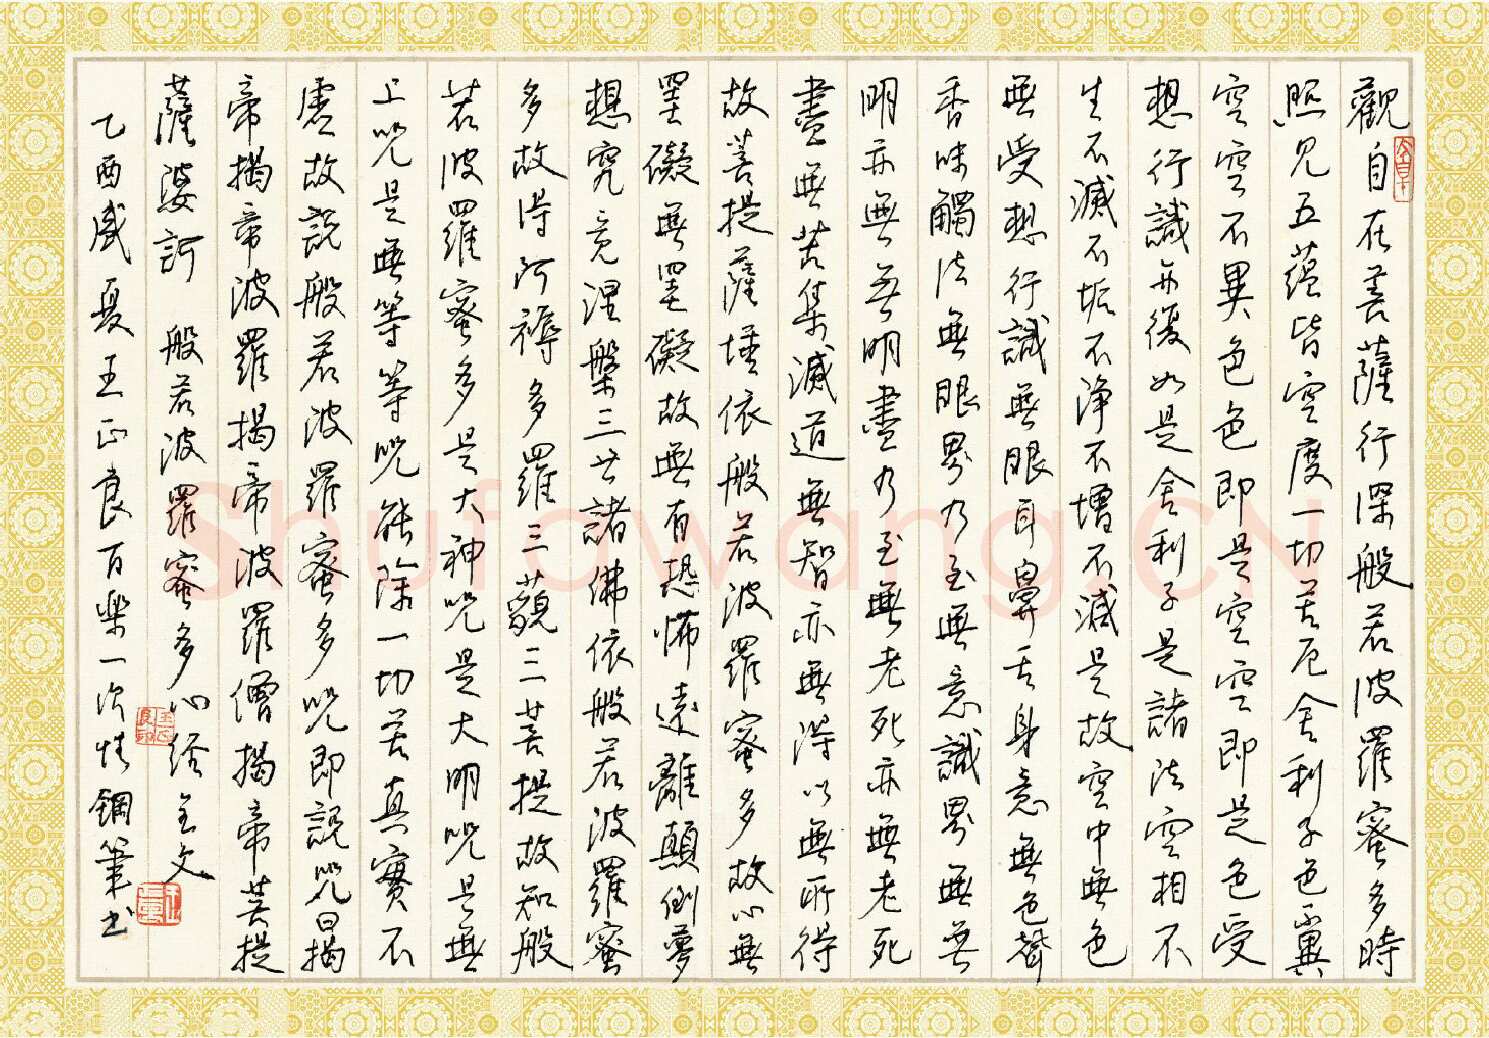 觀自在菩薩行深般若波羅蜜多時
照見五蘊皆空度一切苦厄舍利子色不異
空空不異色色即是空空即是色受
想行識亦復如是舍利子是諸法空相不
生不滅不垢不淨不增不減是故空中無色
無受想行識無眼耳鼻舌身意無色聲
香味觸法無眼界乃至無意識界無無
明亦無無明盡乃至無老死亦無老死
盡無苦集滅道無智亦無得以無所得
故菩提薩埵依般若波羅蜜多故心無
罣礙無罣礙故無有恐怖遠離顛倒夢
想究竟涅槃三世諸佛依般若波羅蜜
多故得阿耨多羅三藐三菩提故知般
若波羅蜜多是大神咒是大明咒是無
上咒是無等等咒能除一切苦真實不
虛故說般若波羅蜜多咒即說咒曰揭
帝揭帝波羅揭帝波羅僧揭帝菩提
薩婆訶 般若波羅蜜多心經全文
乙酉盛夏王正良百樂一次性鋼筆書
王正良印
Shufawang.CN